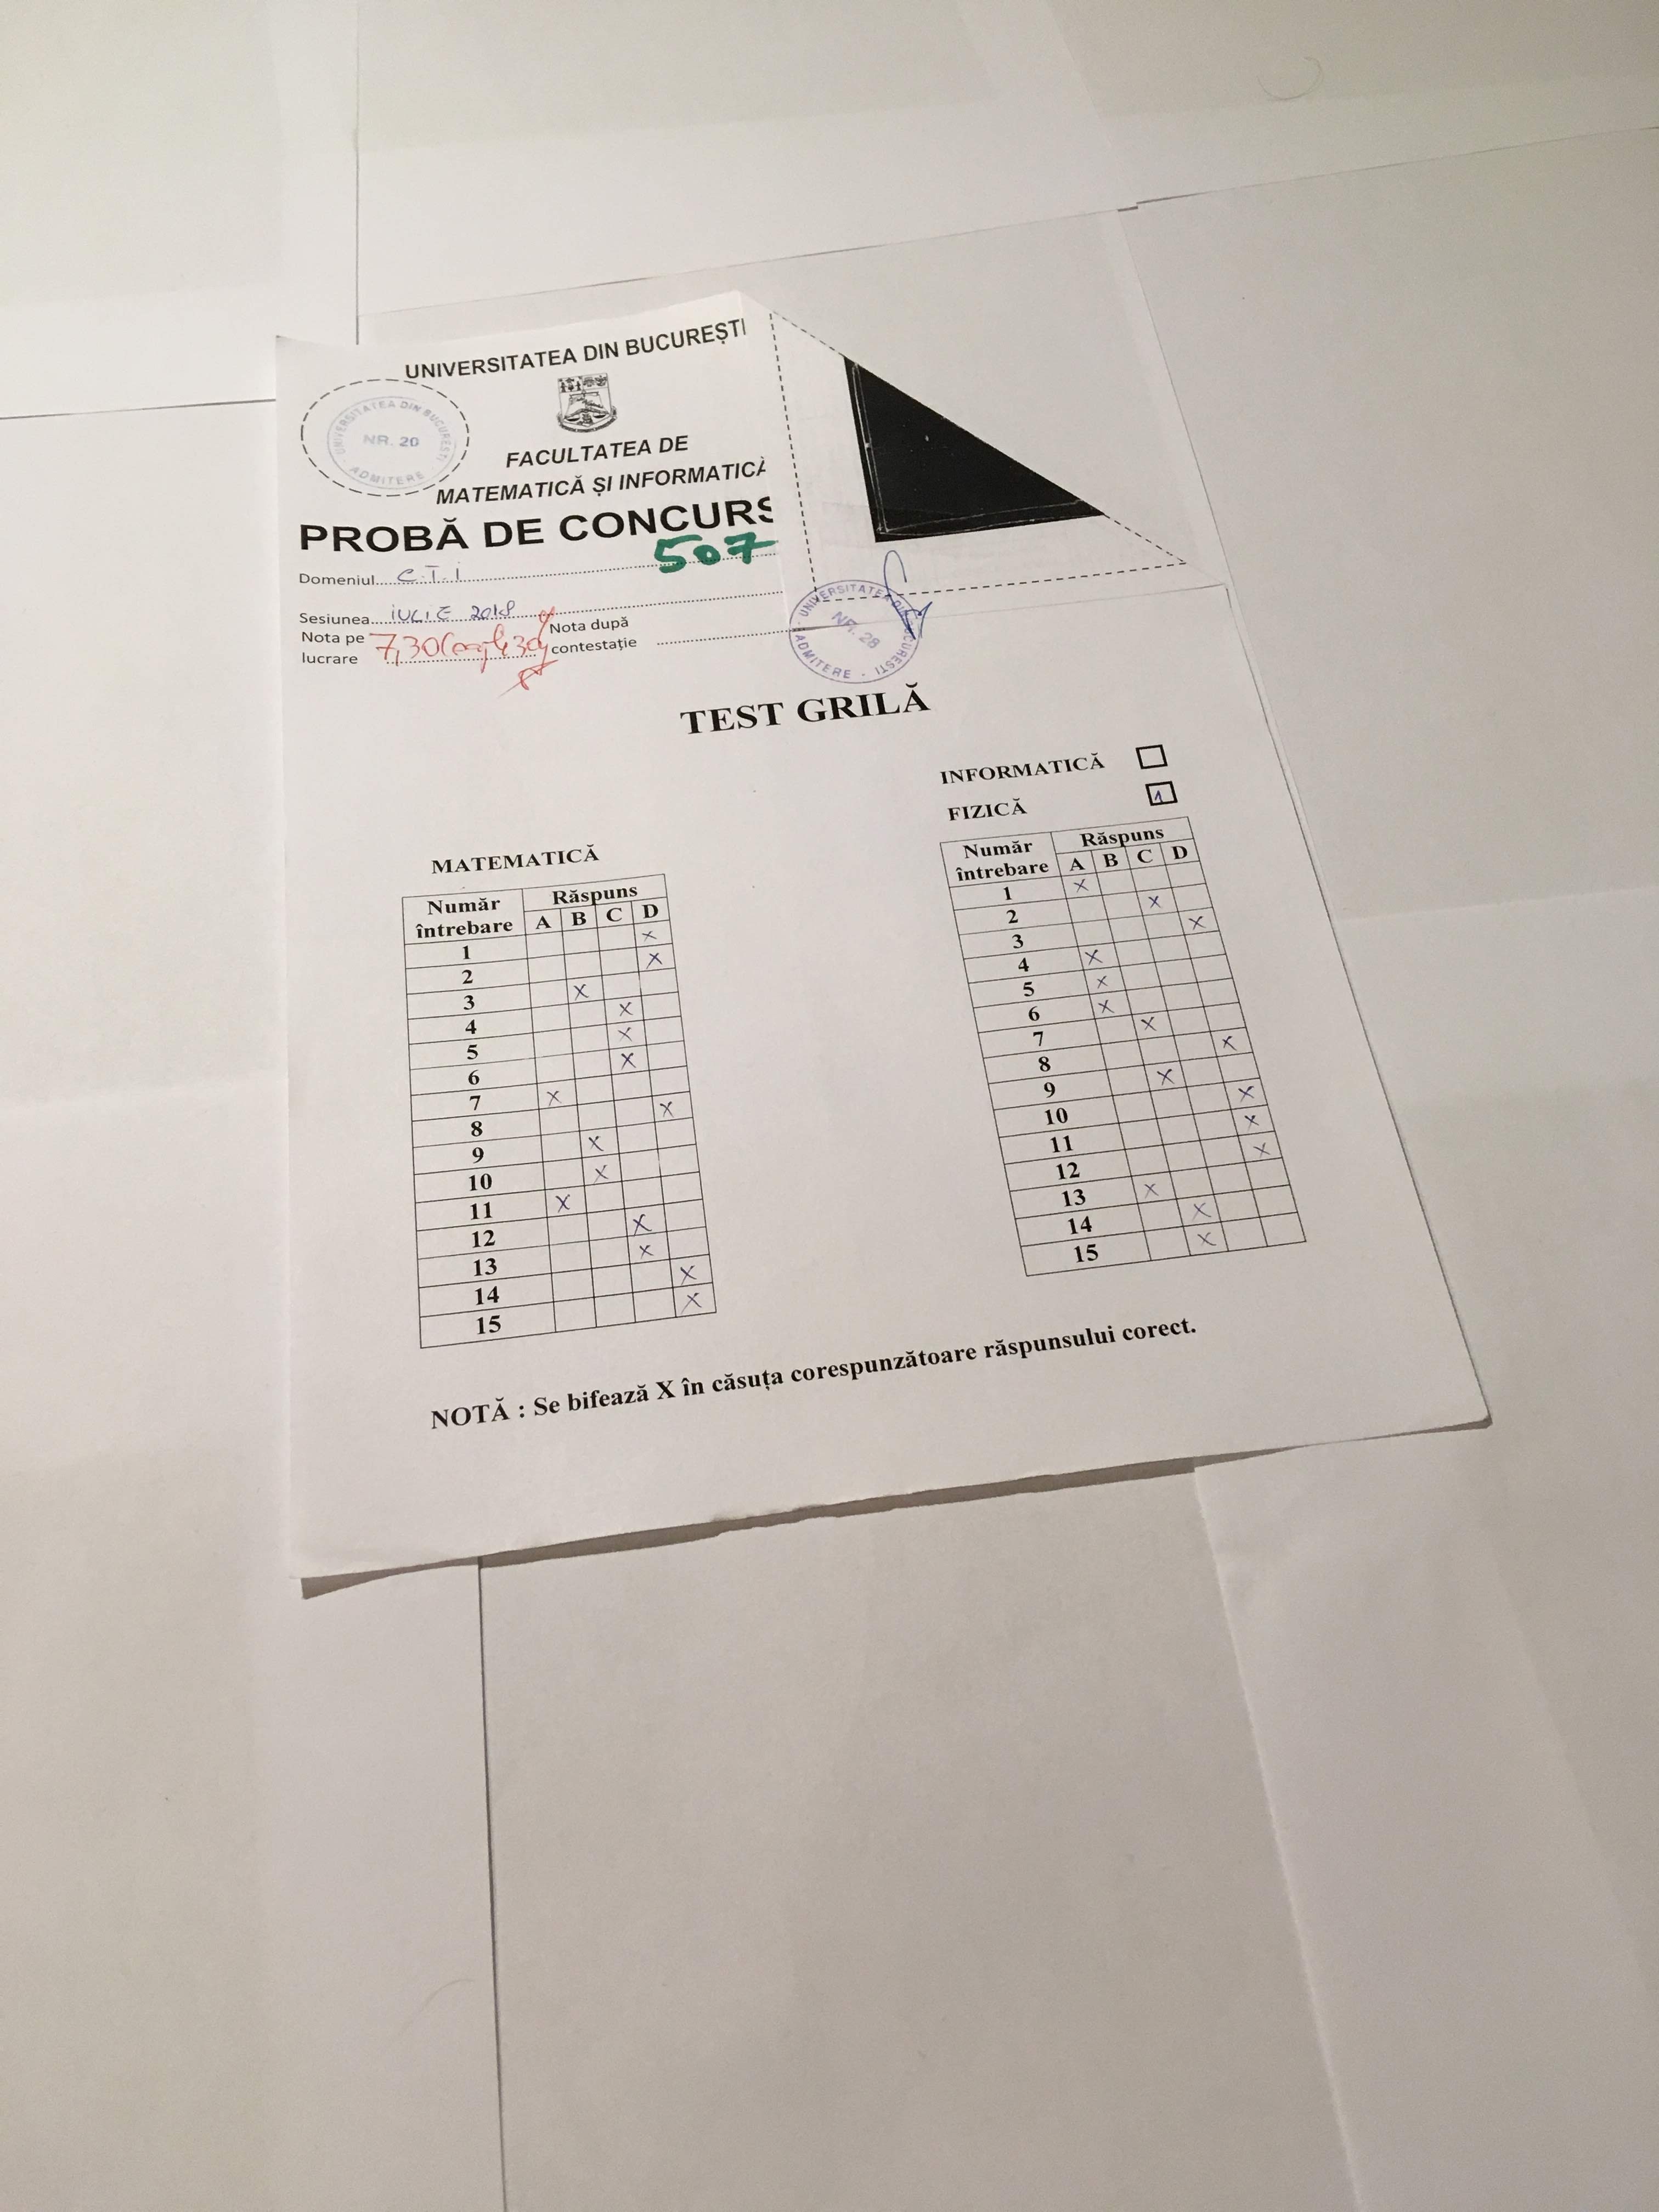 UNIVERSITATEA DIN BUCUREȘTI
UNIVERSITATEA DIN BUCUREȘTI
NR. 20
ADMITERE
FACULTATEA DE
MATEMATICĂ ȘI INFORMATICĂ
PROBĂ DE CONCURS
507
Domeniul C.T.I
Sesiunea IULIE 2018
Nota pe lucrare 7,30
Nota după contestație
UNIVERSITATEA DIN BUCUREȘTI
NR. 28
ADMITERE
TEST GRILĂ
INFORMATICĂ
FIZICĂ 1
MATEMATICĂ
Număr întrebare Răspuns
A B C D
1 X
2 X
3 X
4 X
5 X
6 X
7 X
8 X
9 X
10 X
11 X
12 X
13 X
14 X
15 X
Număr întrebare Răspuns
A B C D
1 X
2 X
3 X
4 X
5 X
6 X
7 X
8 X
9 X
10 X
11 X
12 X
13 X
14 X
15 X
NOTĂ : Se bifează X în căsuța corespunzătoare răspunsului corect.